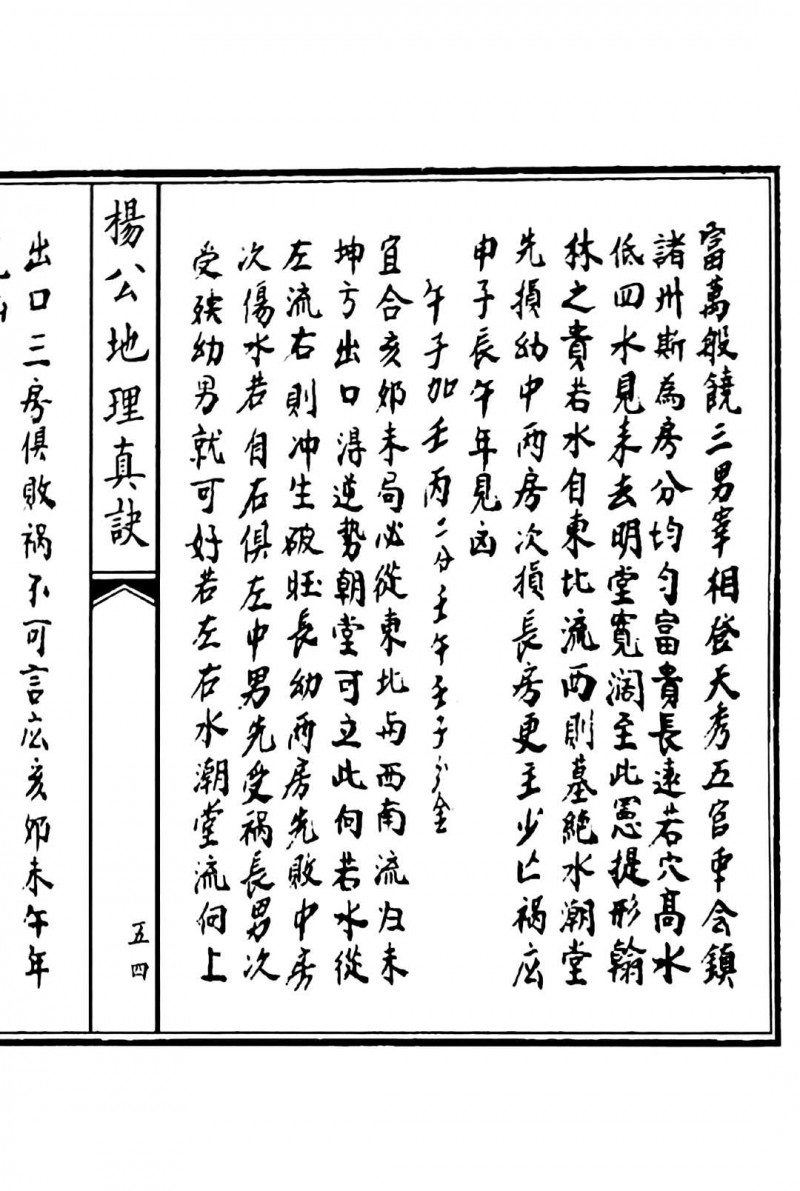 富萬般饒三男宰相登天秀五官重会鎮
諸州斯為房分均匀富貴長遠若穴高水
低四水見来去明堂寬濶至此憲提形翰
林之貴若水自東北流西則墓絶水潮堂
先損幼中两房次損長房更主少亡禍応
申子辰午年見凶
午子加壬丙二分壬午壬子分金
宜合亥卯未局必從東北与西南流归未
坤方出口得逆势朝堂可立此向若水從
左流右則冲生破旺長幼两房先敗中房
次傷水若自右俱左中男先受禍長男次
受殃幼男就可好若左右水潮堂流向上
楊公地理真訣
五四
出口三房俱敗禍不可言応亥卯未午年
見